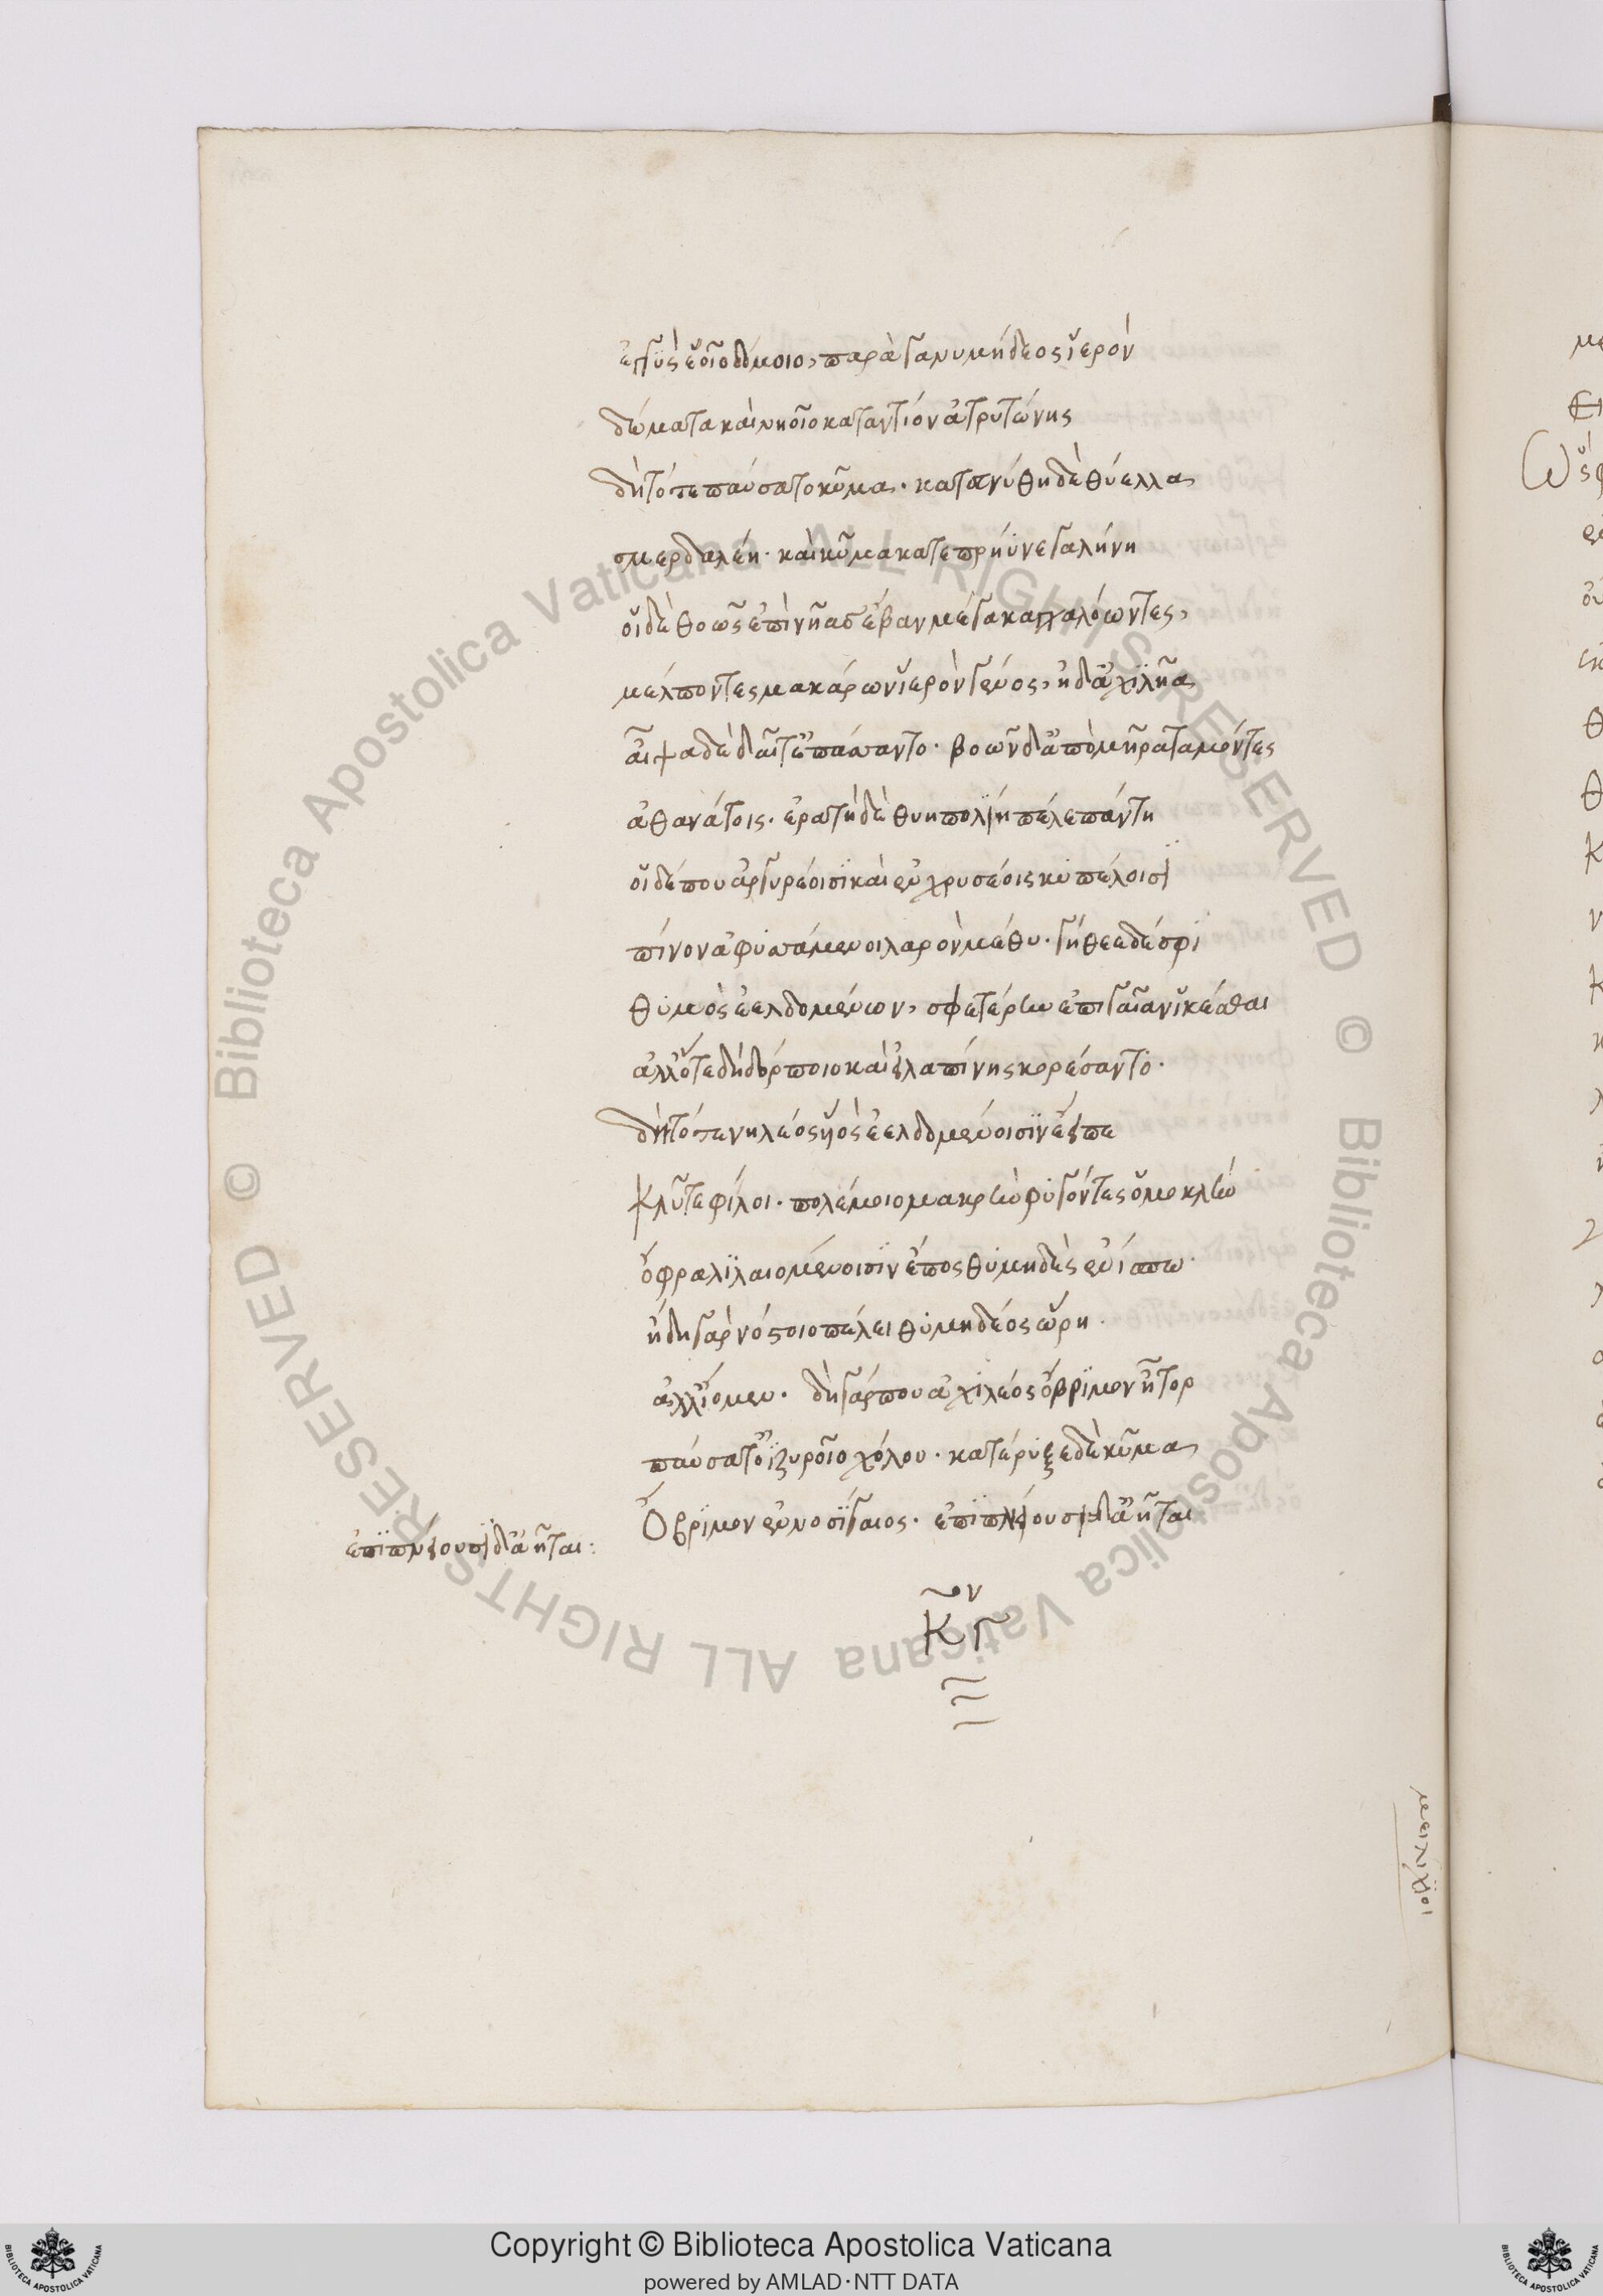 ἐγγὺς ἐοῖο δόμοιο, παρὰ γανυμήδεος ἱερὸν
δώματα καὶ νηοῖο καταντίον ἀτρυτώνης
δὴ τότε παύσατο κῦμα· κατεπνύθη δὲ θύελλα
σμερδαλέη· καὶ κῦμα κατεπρήϋνε γαλήνη
οἱ δὲ θοῶς ἐπὶ νῆας ἔβαν μέγα καγχαλόωντες,
μέλποντες μακάρων ἱερὸν γένος, ἠδ' ἀχιλῆα
αἶψα δὲ δαῖτ' ἐπάσαντο· βοῶν δ' ἀπὸ μῆρα ταμόντες
ἀθανάτοις· ἐρατὴ δὲ θυηπολίη πέλε πάντη
οἱ δέ που ἀργυρέοισι καὶ ἐν χρυσέοις κυπέλοισι
πῖνον ἀφυσσάμενοι λαρὸν μέθυ· γήθεε δέ σφι
θυμὸς ἐελδομένων, σφετέρην ἐπὶ γαῖαν ἱκέσθαι
ἀλλ' ὅτε δὴ δόρποιο καὶ εἰλαπίνης κορέσαντο·
δὴ τότε νηλέος υἱὸς ἐελδομένοισιν ἔειπε
κλῦτε φίλοι· πολέμοιο μακρὴν φυγόντες ὁμοκλὴν
ὄφρα λιλαιομένοισιν ἔπος θυμηδὲς ἐνίσπω·
ἤδη γὰρ νόστοιο πέλει θυμηδέος ὥρη·
ἀλλ' ἴομεν· δὴ γάρ που ἀχιλέος ὄβριμον ἦτορ
παύσατ' ὀϊζυροῖο χόλου· κατέρυξε δὲ κῦμα
Ὄβριμον ἐννοσίγαιος· ἐπιπνείουσι δ' ἀῆται
ἐπιπνείουσι δ' ἀῆται:
κγον
μειλίχιοι